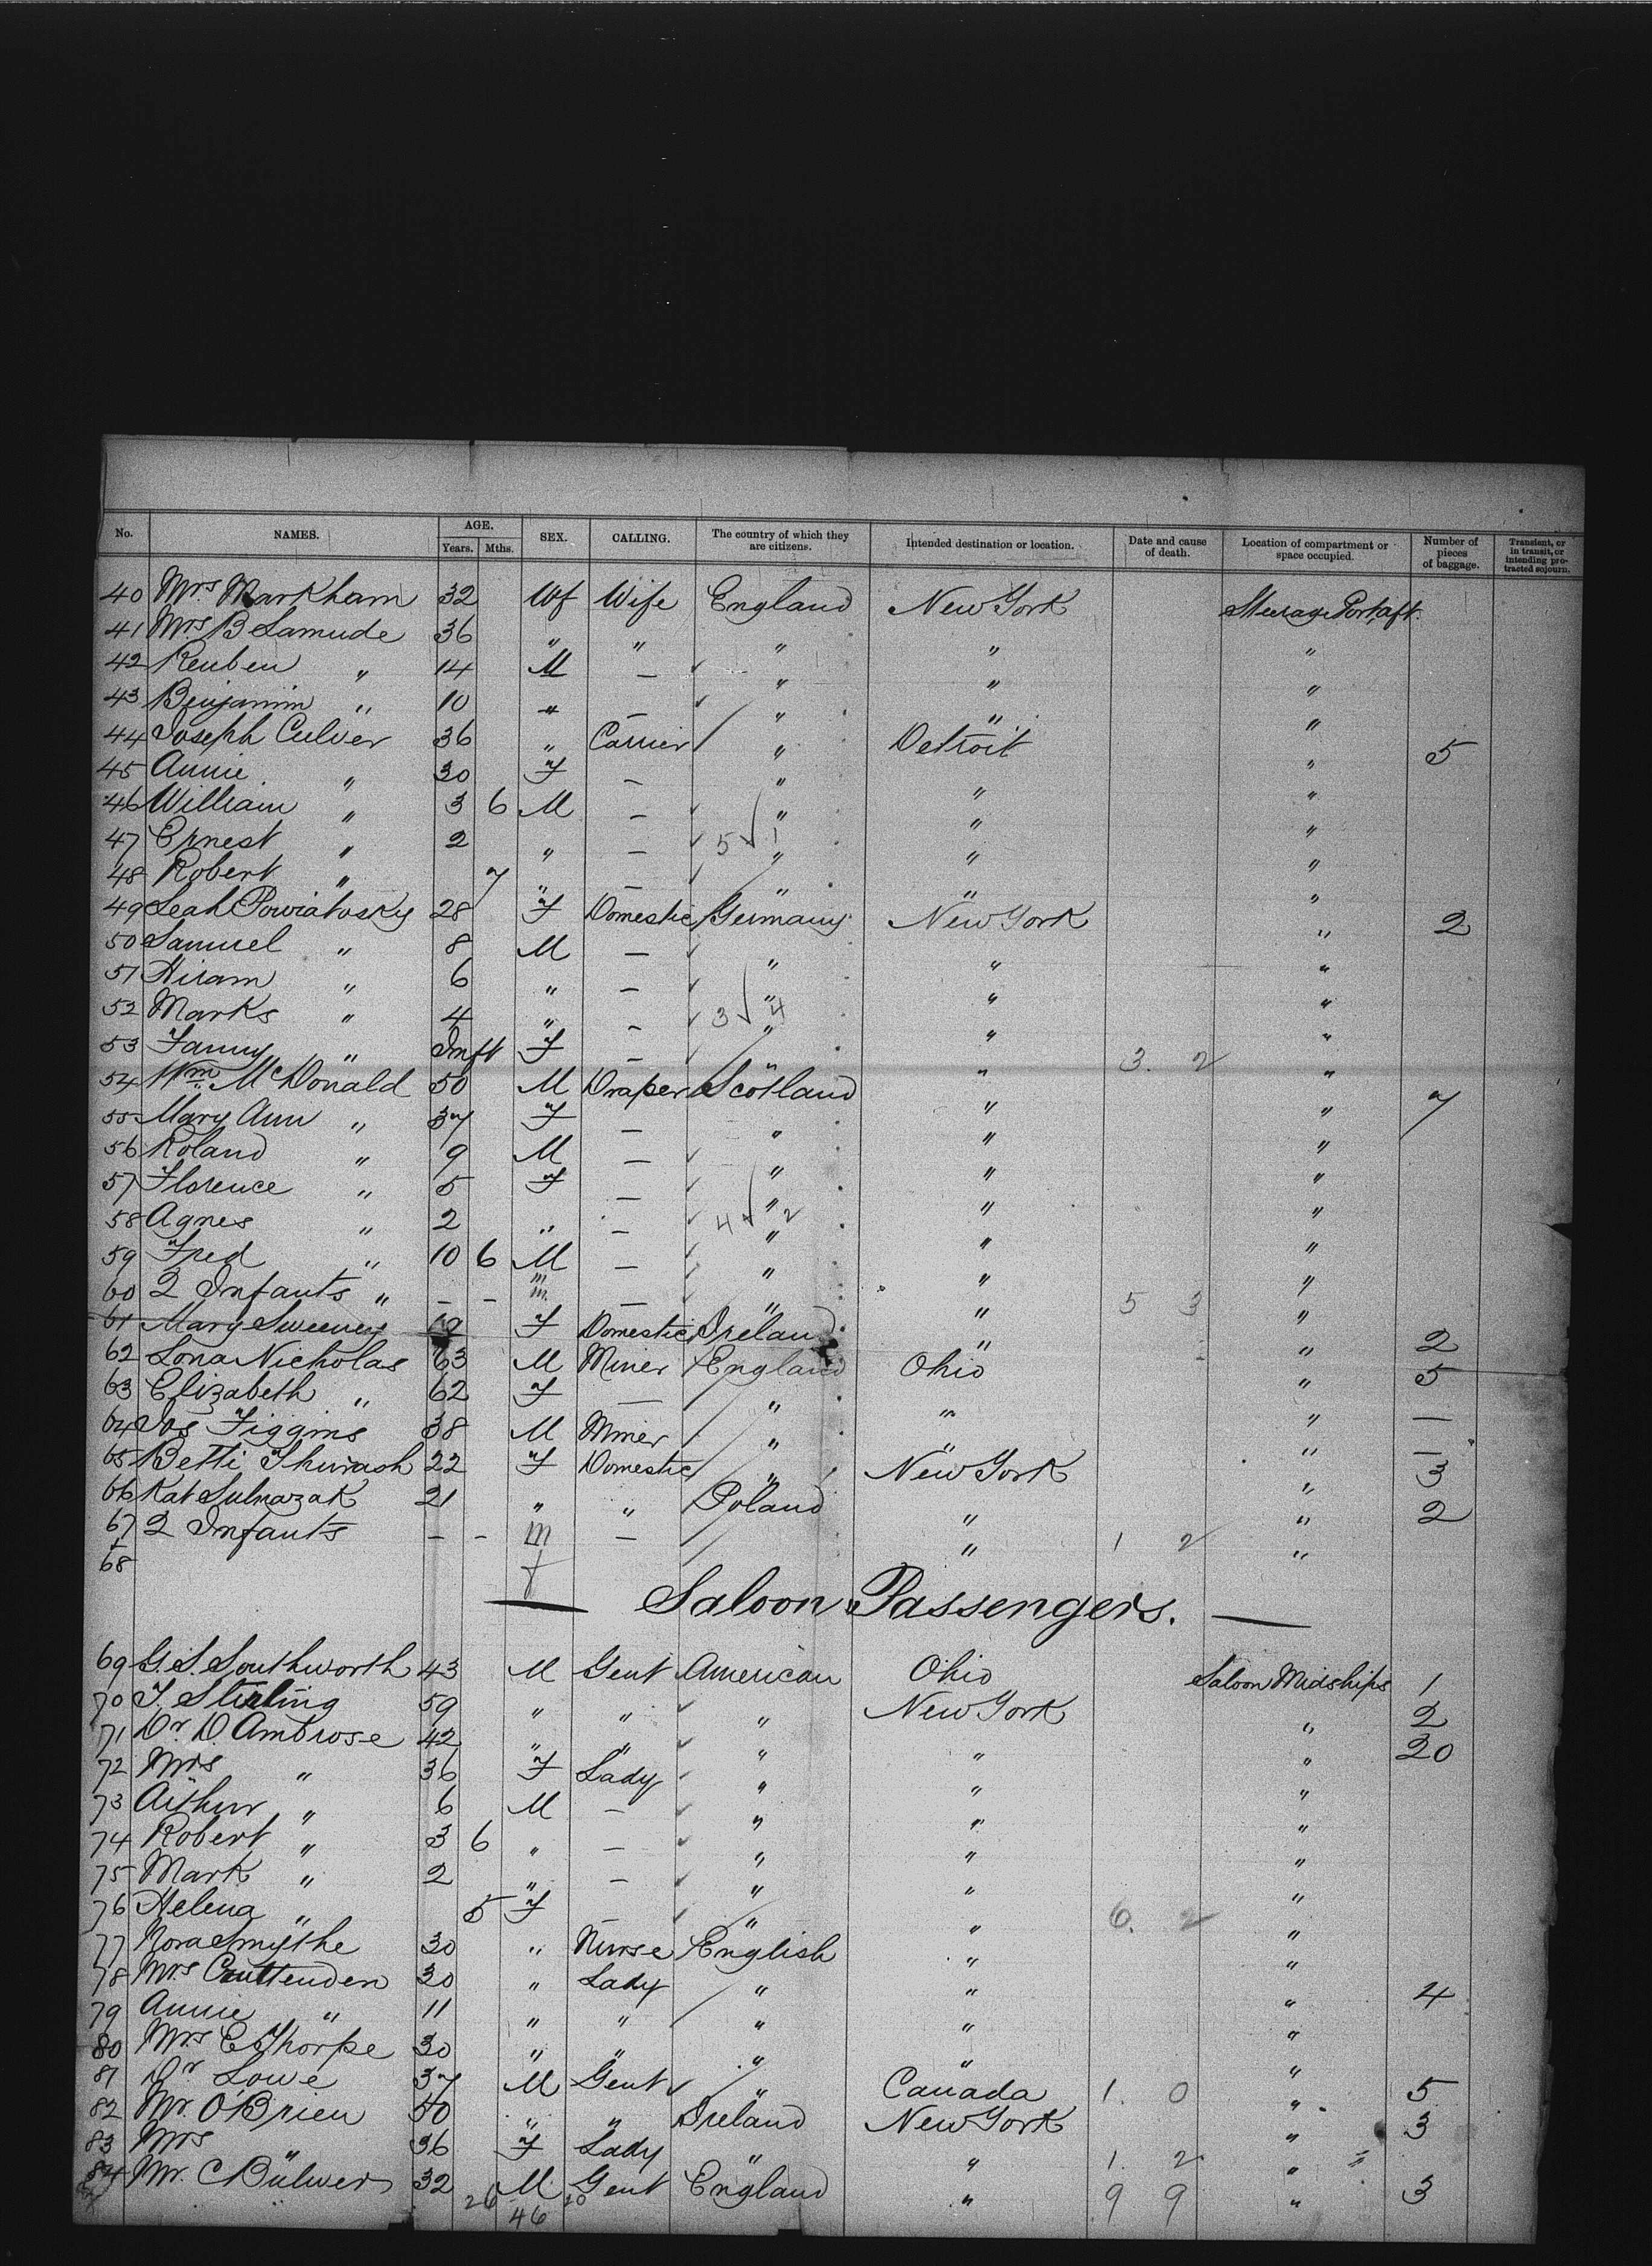 No. NAMES. AGE. Years. Mths. SEX. CALLING. The country of which they are citizens. Intended destination or location. Date and cause of death. Location of compartment or space occupied. Number of pieces of baggage. Transient, or in transit, or intending protracted sojourn.
40 Mrs Markham 32 Wf Wife England New York Steerage Port aft.
41 Mrs B Lamude 36 " " " " "
42 Reuben " 14 M — " " "
43 Benjamin " 10 " — " " "
44 Joseph Culver 36 " Carrier " Detroit " 5
45 Annie " 30 F — " " "
46 William " 3 6 M — " " "
47 Ernest " 2 " — 5 1 " " "
48 Robert " 7 " — " " "
49 Leah Powiatosky 28 F Domestic Germany New York " 2
50 Samuel " 8 M — " " "
51 Hiram " 6 " — " " "
52 Marks " 4 " — 3 4 " " "
53 Fanny " Inft F — " " 3. 2 "
54 Wm McDonald 50 M Draper Scotland " " 7
55 Mary Ann " 37 F — " " "
56 Roland " 9 M — " " "
57 Florence " 5 F — " " "
58 Agnes " 2 " — 4 2 " " "
59 Fred " 10 6 M — " " "
60 2 Infants " — — m m — " " 5 3 "
61 Mary Sweeney F Domestic Ireland " " 2
62 Lona Nicholas 63 M Miner England Ohio " 5
63 Elizabeth " 62 F — " " "
64 Jos Figgins 38 M Miner " " " —
65 Betti Thurash 22 F Domestic " New York " 3
66 Kat Sulnazak 21 " " Poland " " 2
67 2 Infants — — m — " 1 2 "
68 f
— Saloon Passengers. —
69 G. S. Southworth 43 M Gent American Ohio Saloon Midships 1
70 J. Stirling 59 " " " New York " 2
71 Dr. D. Ambrose 42 " " " " " 20
72 Mrs " 36 F Lady " " "
73 Arthur " 6 M — " " "
74 Robert " 3 6 " — " " "
75 Mark " 2 " — " " "
76 Helena " 5 F — " " 6. 2 "
77 Nora Smythe 30 " Nurse English " "
78 Mrs Cruttenden 30 " Lady " " " 4
79 Annie " 11 " " " " "
80 Mrs E Thorpe 30 " " " " "
81 Dr Lowe 37 M Gent " Canada 1. 0 " 5
82 Mr. O'Brien 50 " " Ireland New York " 3
83 Mrs " 36 F Lady " " 1. 2 "
84 Mr. C Bulwer 32 M Gent England " 9 9 " 3
26 46 20